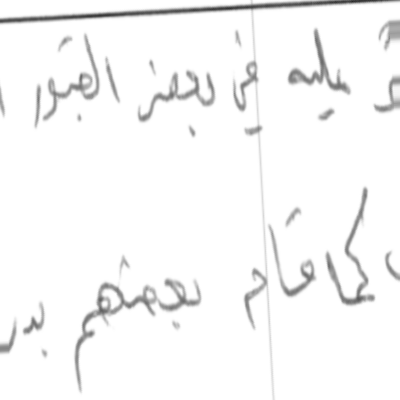 عليه في بعض القبور
كما قام بعضهم بدر